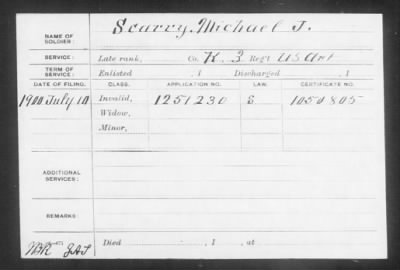 NAME OF SOLDIER: Scurry, Michael J.
SERVICE: Late rank, Co. K, 3 Reg't U.S. Art
TERM OF SERVICE: Enlisted , 1 Discharged , 1
DATE OF FILING. CLASS. APPLICATION NO. LAW. CERTIFICATE NO.
1900 July 10 Invalid, 1251230 1050805
Widow,
Minor,
ADDITIONAL SERVICES:
REMARKS:
Died , 1 , at